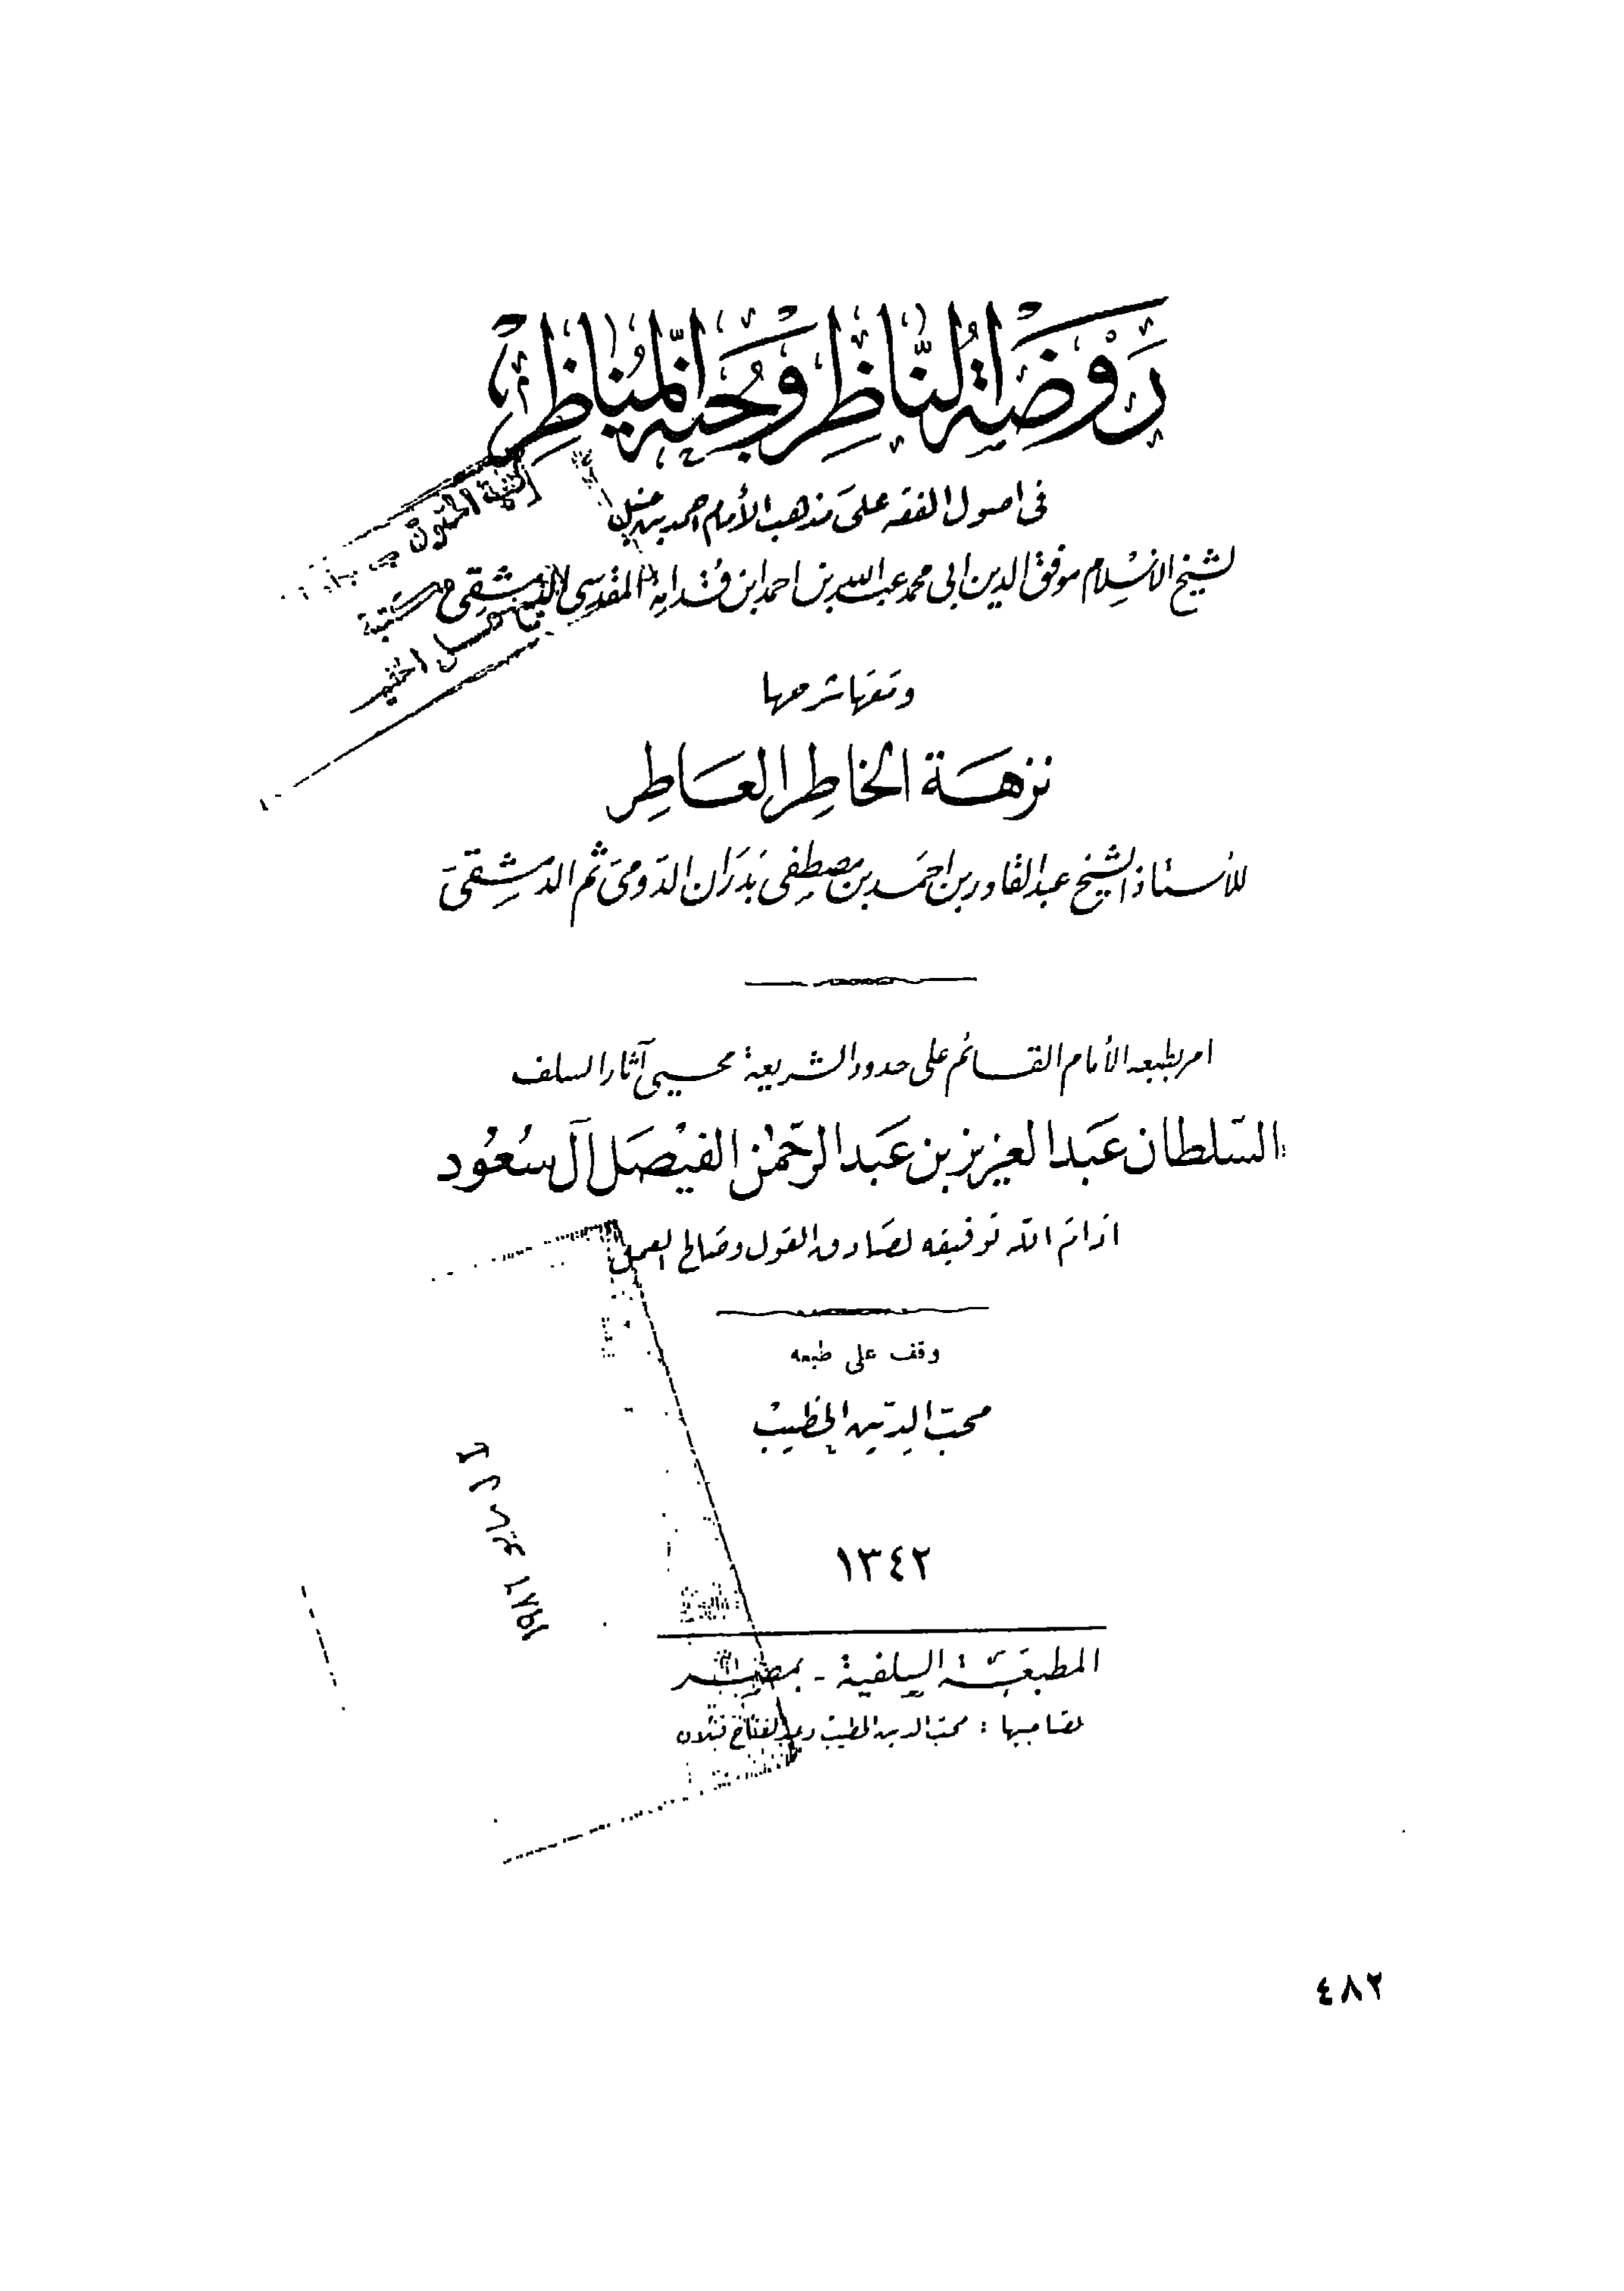 رَوضَة النَّاظِر وَجُنة المُنَاظِر
فى اصول الفقه على مذهب الأمام احمد بن حنبل
لشيخ الاسلام موفق الدين ابى محمد عبد الله بن احمد ابن قدامة المقدسى الدمشقى
ومعها شرحها
نزهة الخاطر العاطر
للأستاذ الشيخ عبد القادر بن احمد بن مصطفى بدران الدومى ثم الدمشقى
امر بطبعه الأمام القائم على حدود الشريعة محيي آثار السلف
السلطان عبد العزيز بن عبد الرحمن الفيصل آل سعود
ادام الله توفيقه لصادق القول وصالح العمل
وقف على طبعه
محب الدين الخطيب
١٣٤٢
المطبعة السلفية - بمصر
لصاحبيها : محب الدين الخطيب وعبد الفتاح قتلان
٤٨٢